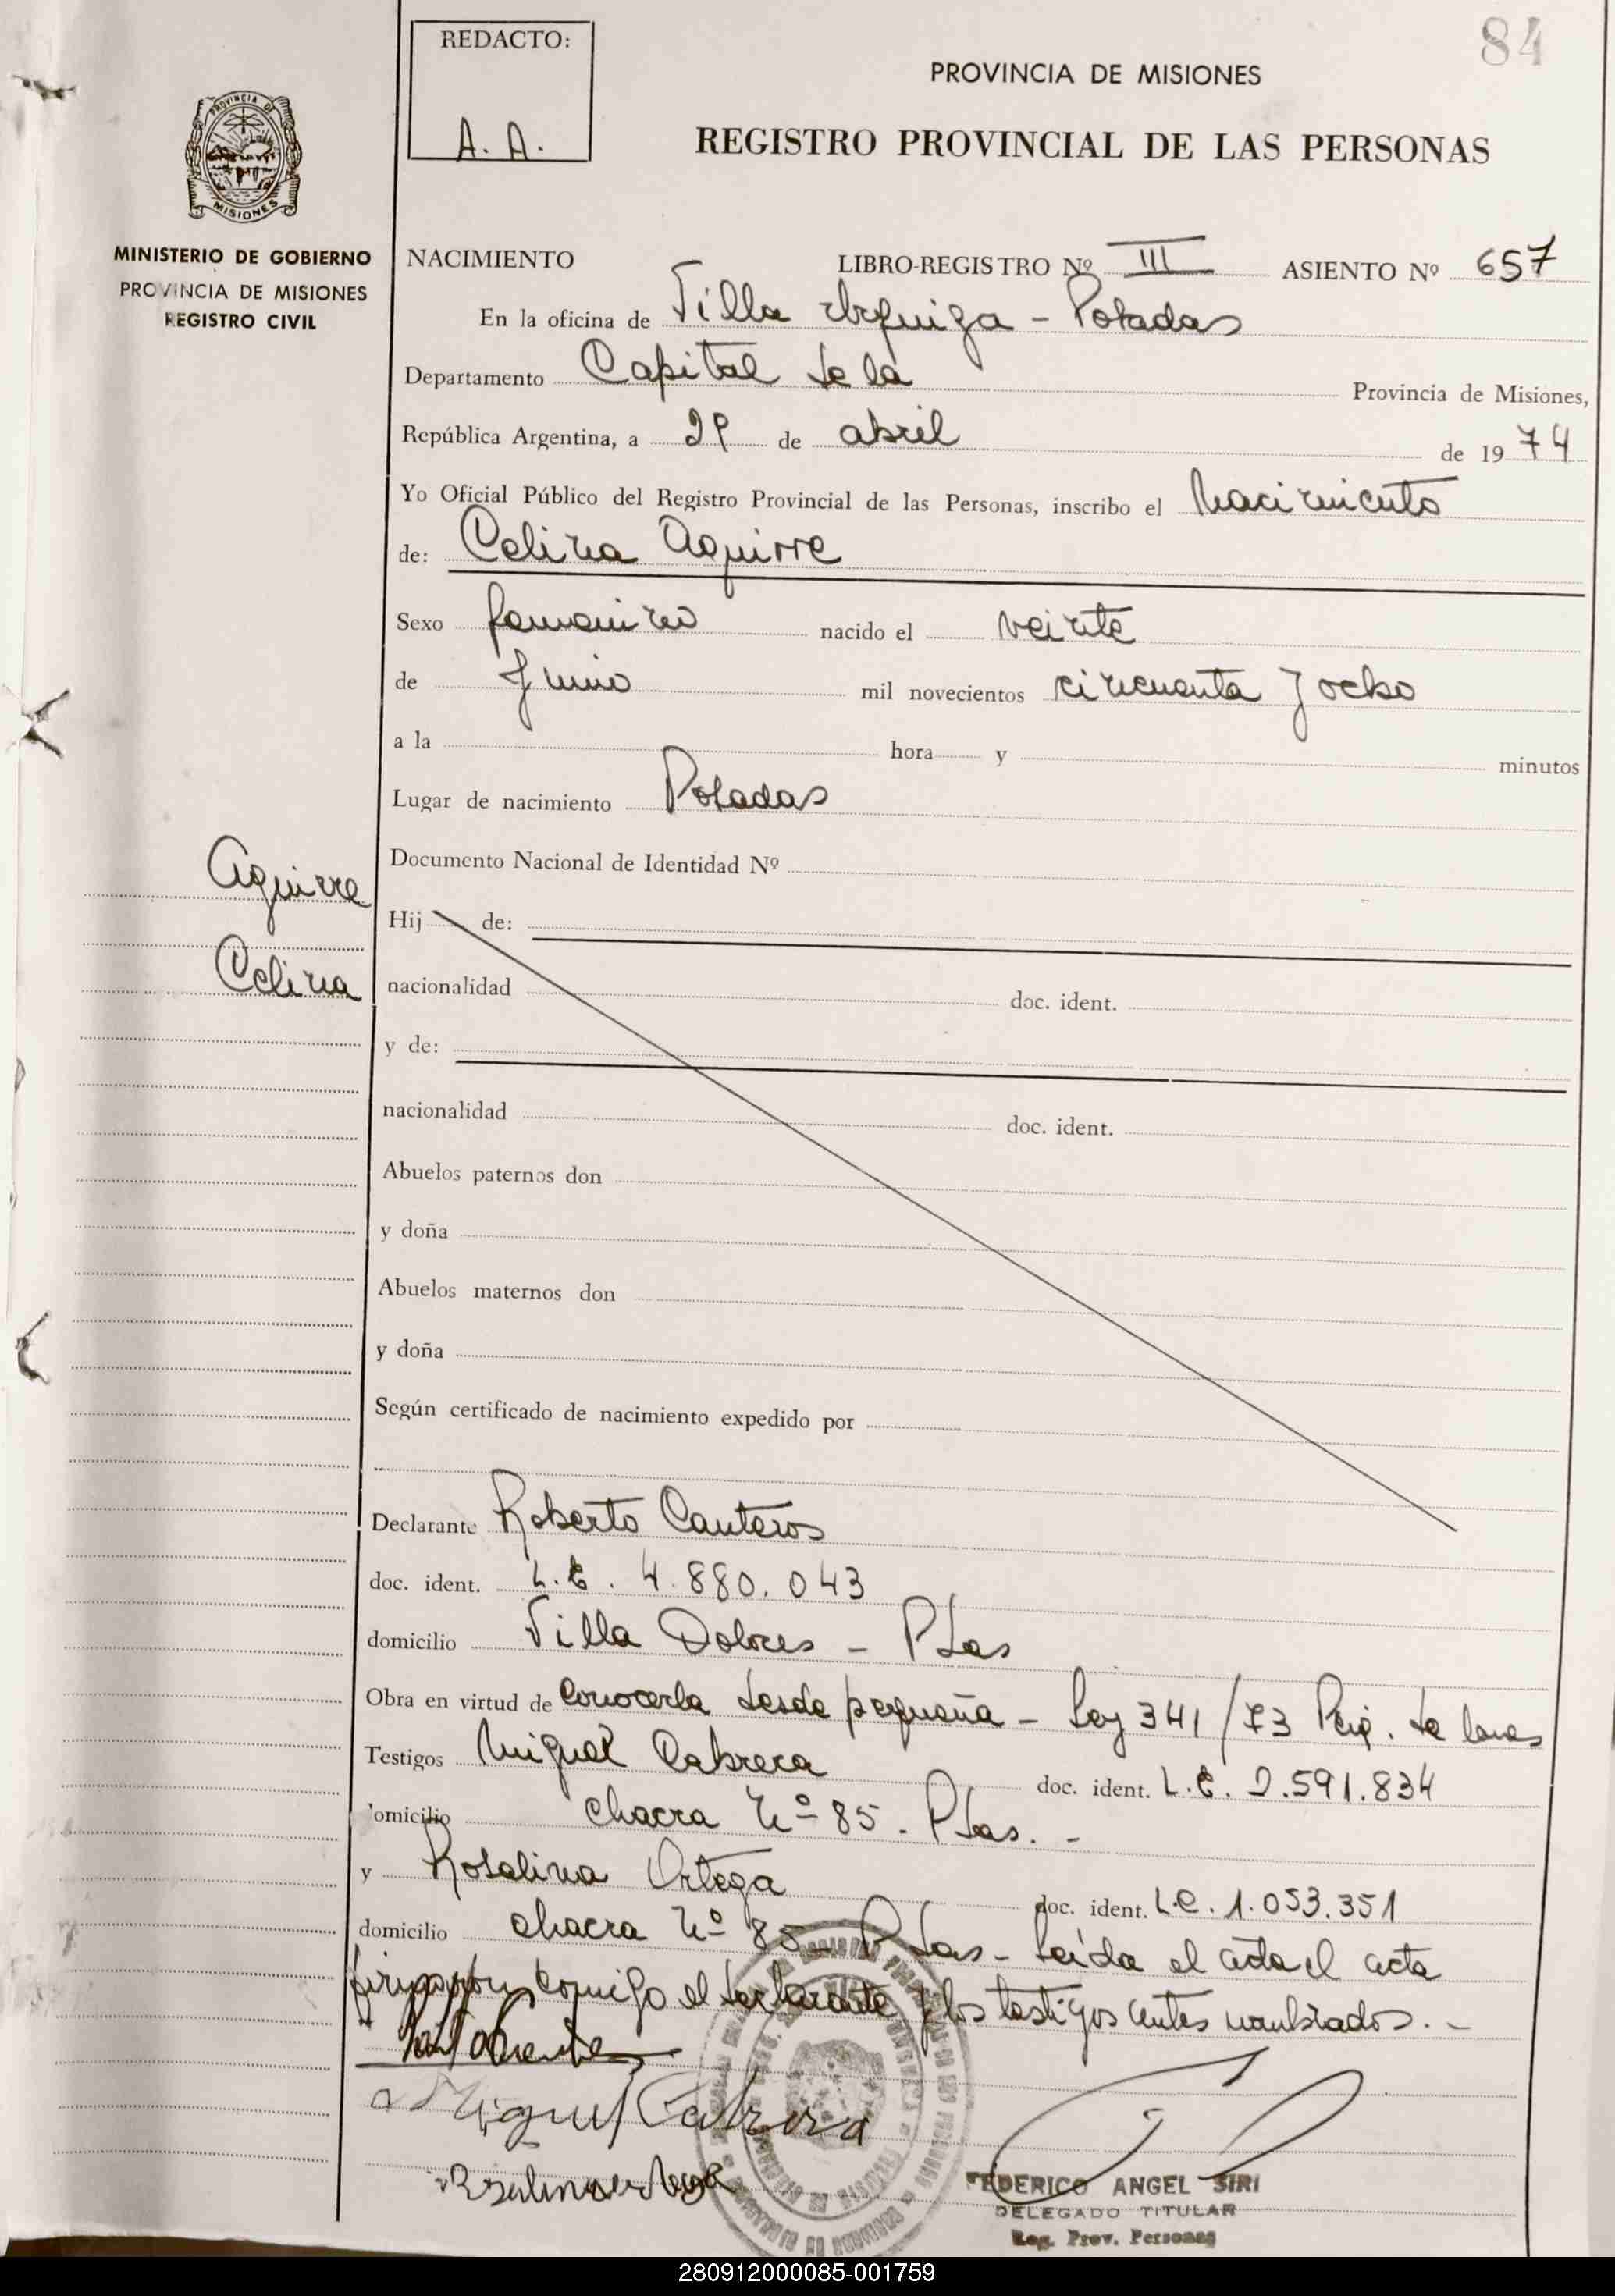 84
REDACTO:
A. A.
PROVINCIA DE MISIONES
REGISTRO PROVINCIAL DE LAS PERSONAS
PROVINCIA DE
MISIONES
MINISTERIO DE GOBIERNO
PROVINCIA DE MISIONES
REGISTRO CIVIL
NACIMIENTO LIBRO-REGISTRO Nº III ASIENTO Nº 657
En la oficina de Villa Urquiza - Posadas
Departamento Capital de la Provincia de Misiones,
República Argentina, a 29 de abril de 1974
Yo Oficial Público del Registro Provincial de las Personas, inscribo el Nacimiento
de: Celina Aguirre
Sexo femenino nacido el veinte
de Junio mil novecientos cincuenta y ocho
a la hora y minutos
Lugar de nacimiento Posadas
Documento Nacional de Identidad Nº
Aguirre
Celina
Hij de:
nacionalidad doc. ident.
y de:
nacionalidad doc. ident.
Abuelos paternos don
y doña
Abuelos maternos don
y doña
Según certificado de nacimiento expedido por
Declarante Roberto Canteros
doc. ident. L.E. 4.880.043
domicilio Villa Dolores - Pdas
Obra en virtud de conocerla desde pequeña - Ley 341/73 de
Testigos Miguel Cabrera doc. ident. L.E. 2.591.834
domicilio chacra Nº 85. Pdas. -
y Rosalina Ortega doc. ident. L.C. 1.053.351
domicilio chacra Nº 85 - Pdas - Leída el acta el acta
firmaron conmigo el declarante y los testigos antes nombrados. -
Miguel Cabrera
FEDERICO ANGEL SIRI
DELEGADO TITULAR
Reg. Prov. Personas
280912000085-001759